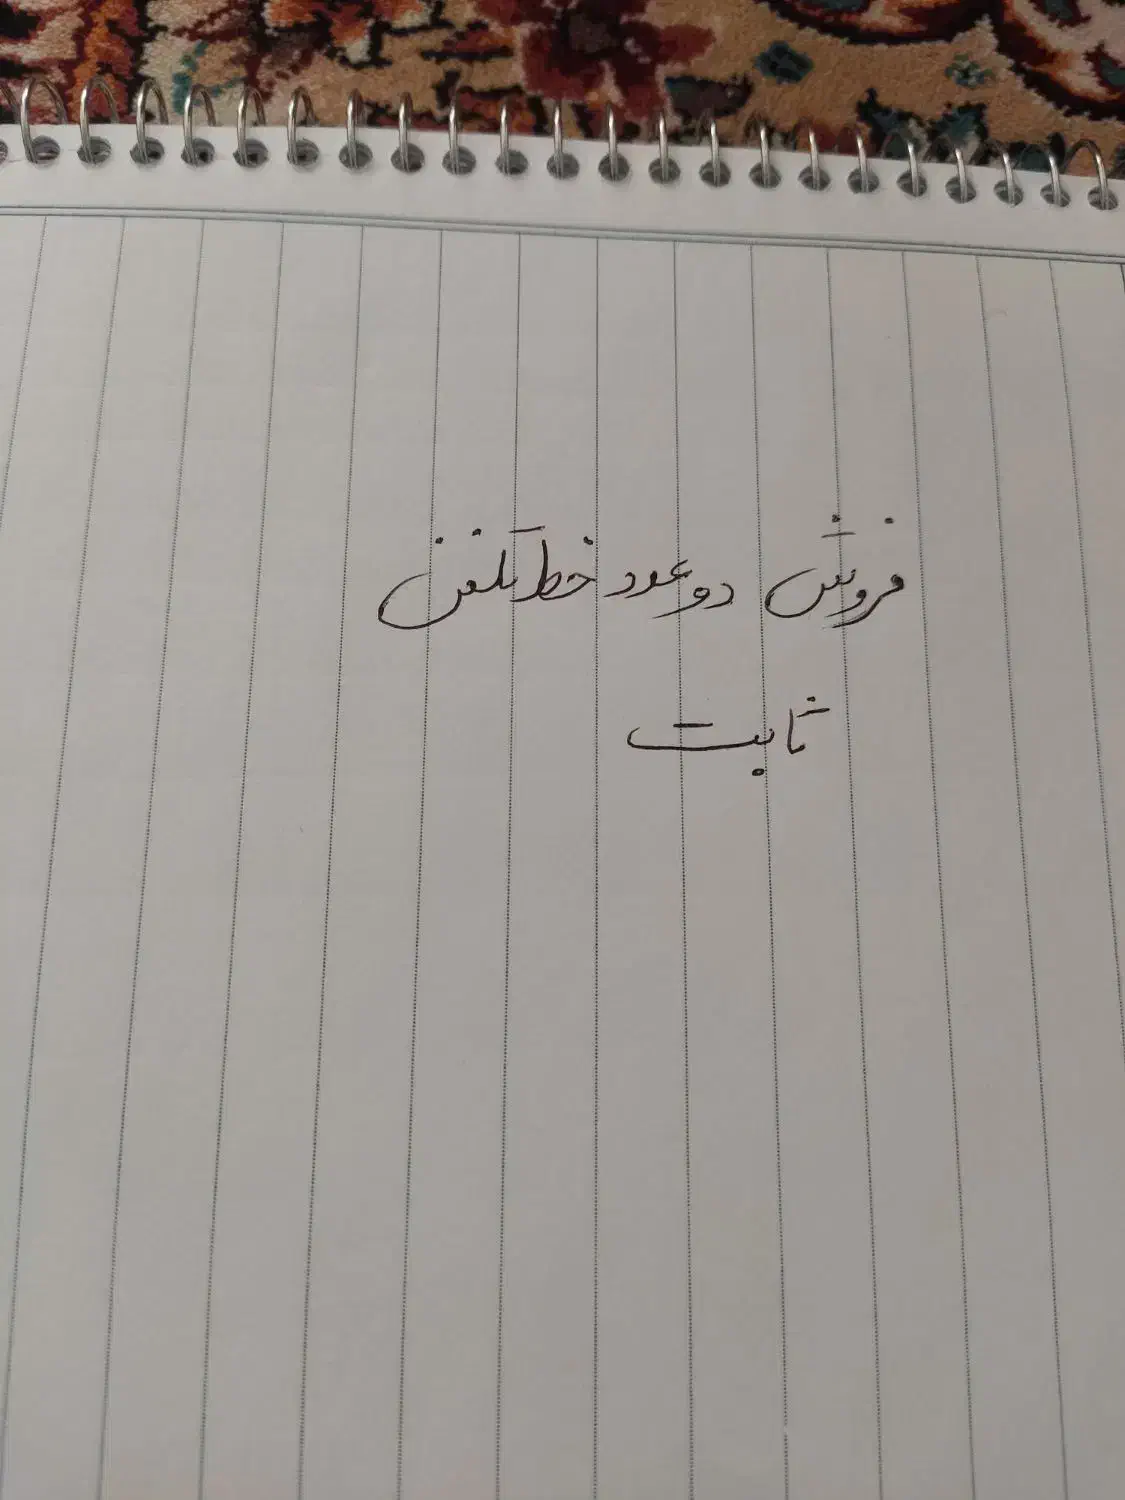 فروش دو عدد خط تلفن
ثابت